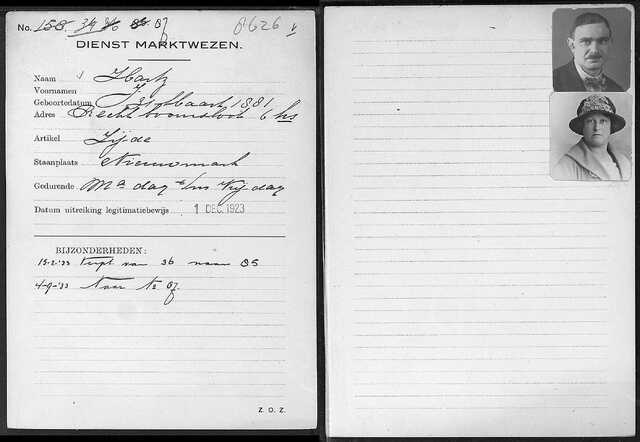 No. 158. 34 36 85 87
8626 v
DIENST MARKTWEZEN.
Naam Hartz
Voornamen J.
Geboortedatum Maart 1881
Adres Recht boomsloot 6 hs
Artikel Zijde
Staanplaats Nieuwmarkt
Gedurende Ma dag t/m Vrijdag
Datum uitreiking legitimatiebewijs 1 DEC. 1923
BIJZONDERHEDEN:
van 36 naar 85
4-9-'33 Naar No 87.
Z. O. Z.